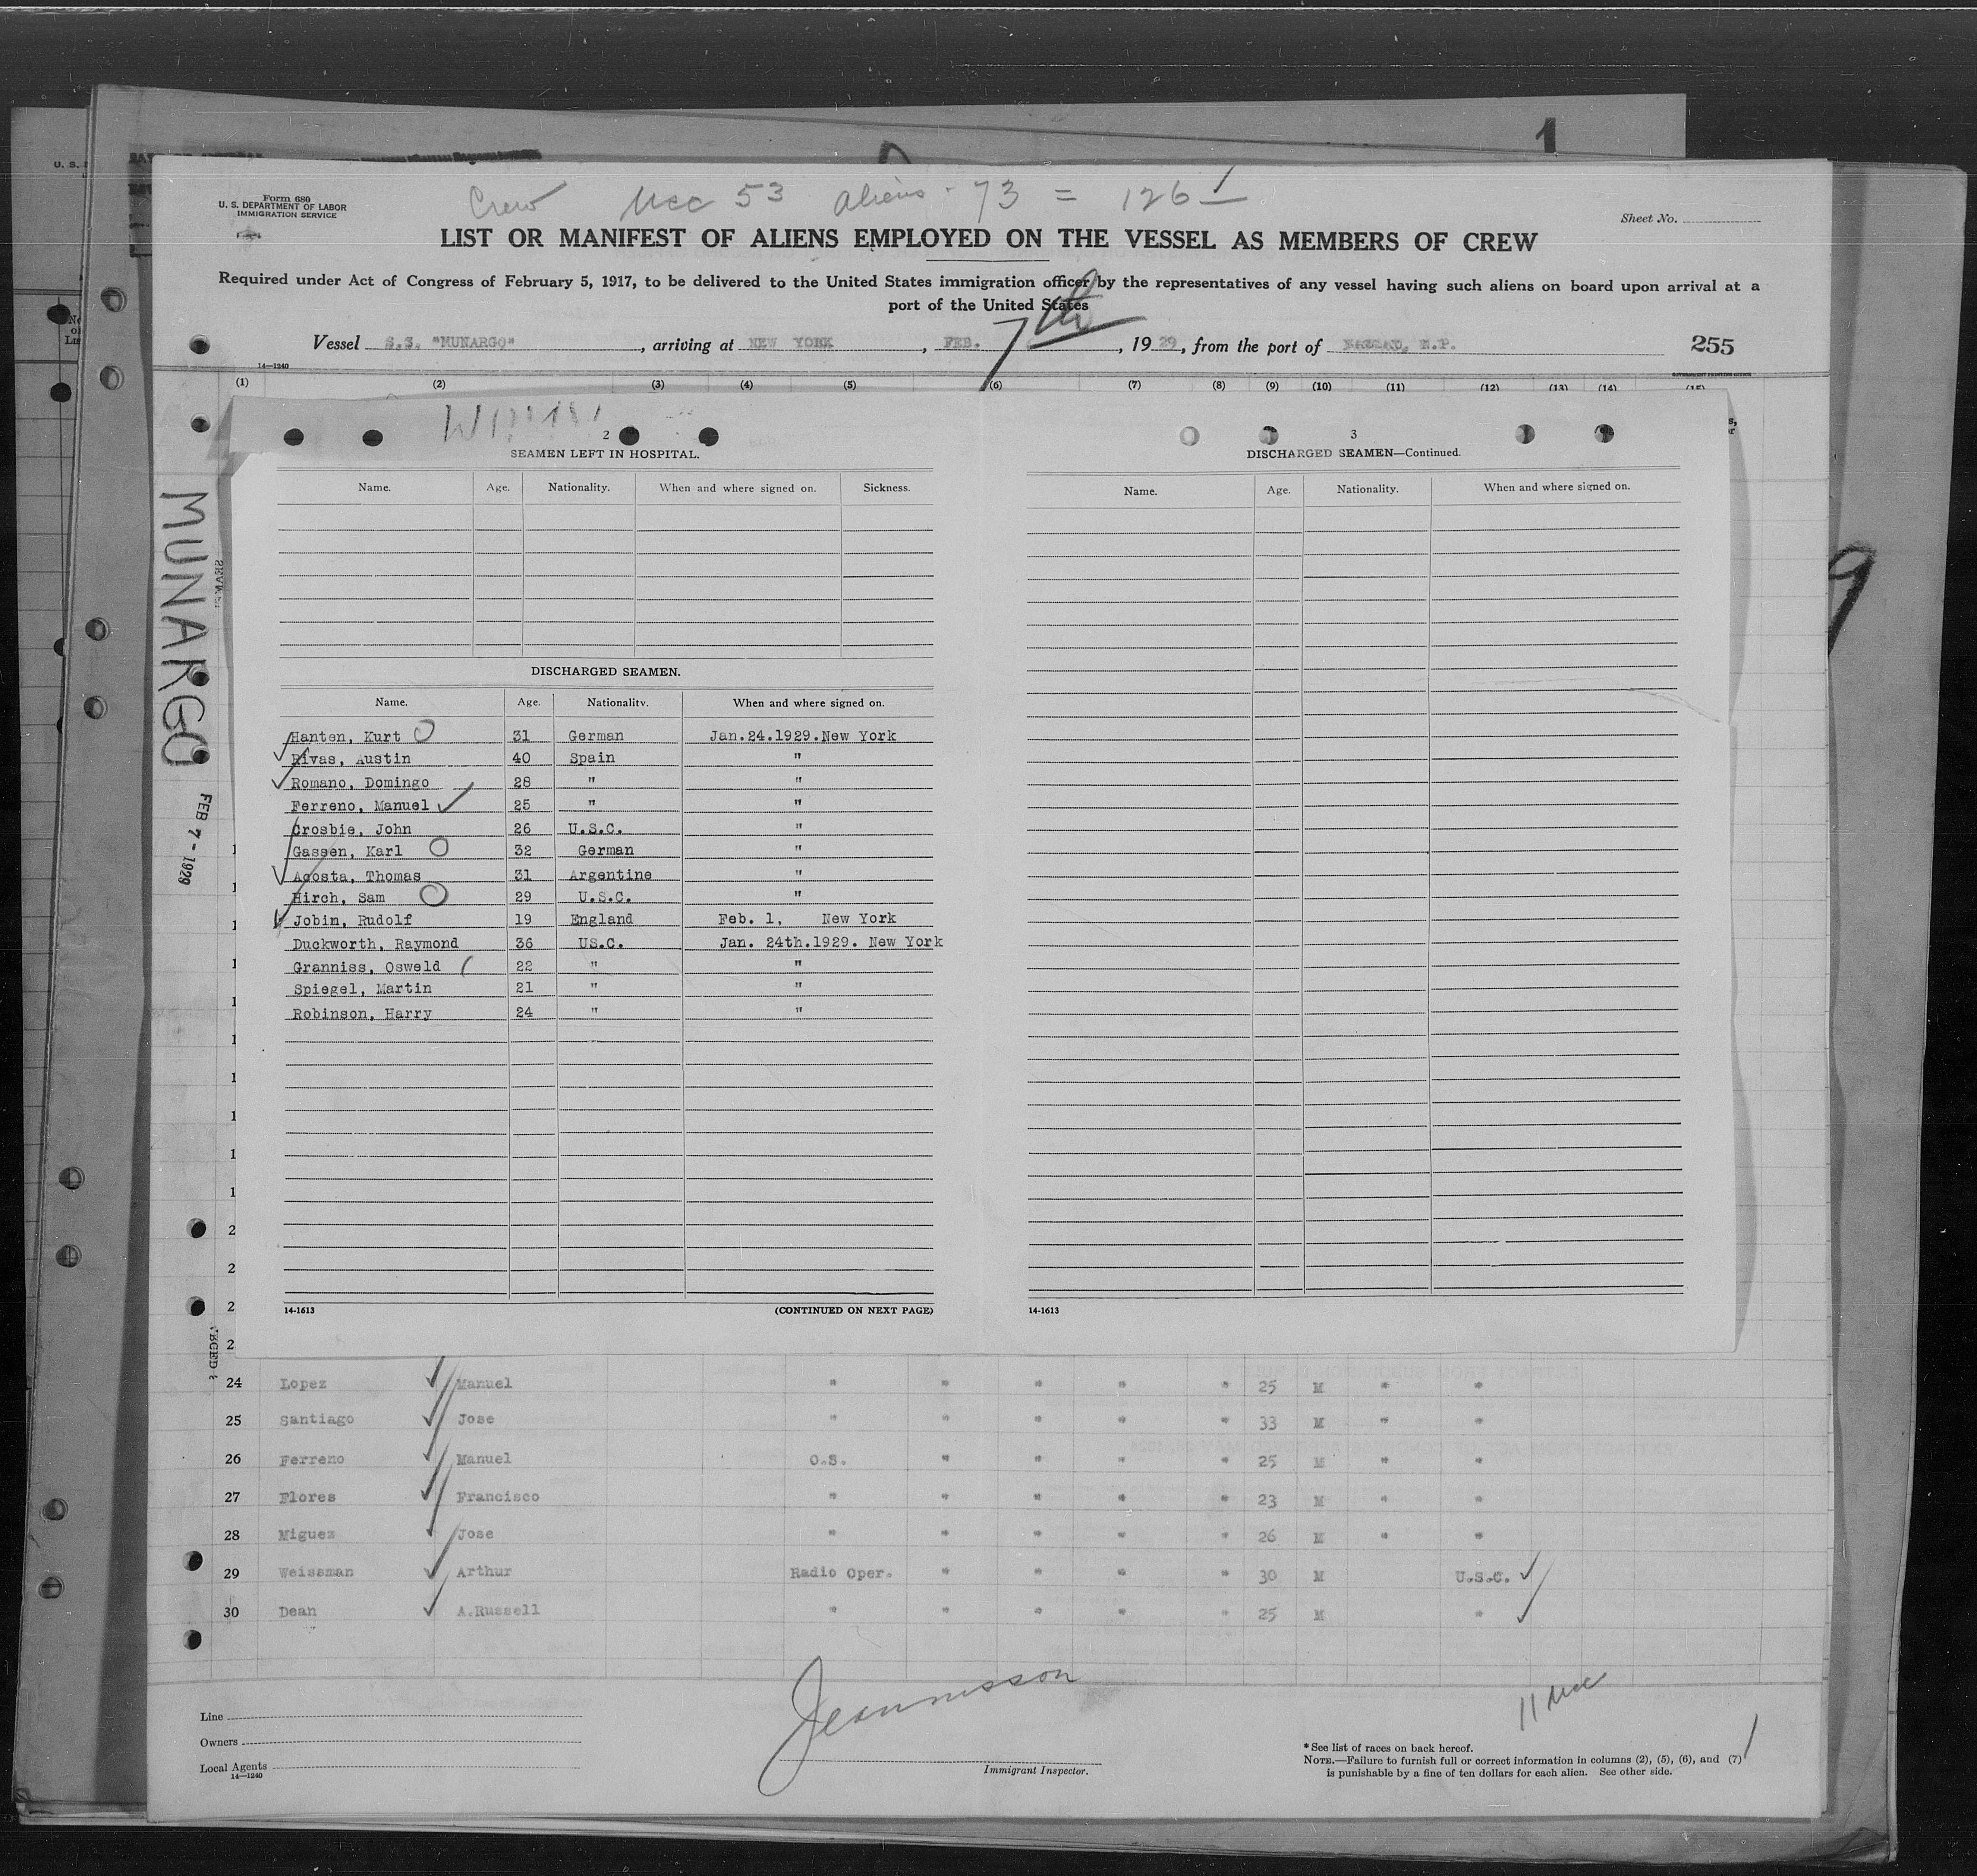 1
U. S.
Form 680
U. S. DEPARTMENT OF LABOR
IMMIGRATION SERVICE
Crew usc 53 aliens - 73 = 126
Sheet No.
LIST OR MANIFEST OF ALIENS EMPLOYED ON THE VESSEL AS MEMBERS OF CREW
Required under Act of Congress of February 5, 1917, to be delivered to the United States immigration officer by the representatives of any vessel having such aliens on board upon arrival at a
port of the United States
Vessel S.S. "MUNARGO", arriving at NEW YORK, FEB. 7th, 1929, from the port of NASSAU, N.P. 255
14—1240
(1) (2) (3) (4) (5) (6) (7) (8) (9) (10) (11) (12) (13) (14) (15)
MUNARGO
FEB 7 - 1929
2
SEAMEN LEFT IN HOSPITAL.
Name. Age. Nationality. When and where signed on. Sickness.
DISCHARGED SEAMEN.
Name. Age. Nationality. When and where signed on.
Hanten, Kurt 31 German Jan.24.1929.New York
Rivas, Austin 40 Spain "
Romano, Domingo 28 " "
Ferreno, Manuel 25 " "
Crosbie, John 26 U.S.C. "
Gassen, Karl 32 German "
Acosta, Thomas 31 Argentine "
Hirch, Sam 29 U.S.C. "
Jobin, Rudolf 19 England Feb. 1, New York
Duckworth, Raymond 36 US.C. Jan. 24th.1929. New York
Granniss, Osweld 22 " "
Spiegel, Martin 21 " "
Robinson, Harry 24 " "
14-1613 (CONTINUED ON NEXT PAGE)
3
DISCHARGED SEAMEN—Continued.
Name. Age. Nationality. When and where signed on.
14-1613
24 Lopez Manuel " " " " " 25 M " "
25 Santiago Jose " " " " " 33 M " "
26 Ferreno Manuel O.S. " " " " 25 M " "
27 Flores Francisco " " " " " 23 M " "
28 Miguez Jose " " " " " 26 M " "
29 Weissman Arthur Radio Oper. " " " " 30 M U.S.C.
30 Dean A.Russell " " " " " 25 M "
11 usc
Line
Owners
Local Agents
14—1240
Immigrant Inspector.
* See list of races on back hereof.
NOTE.—Failure to furnish full or correct information in columns (2), (5), (6), and (7)
is punishable by a fine of ten dollars for each alien. See other side.